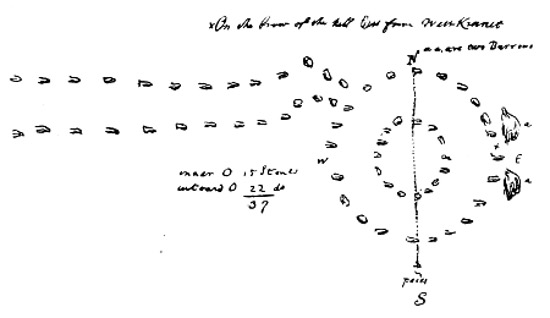 x On the brow of the hill East from West Kennet
N
a a, are two Barrows
a
W
x
E
a
inner O 15 Stones
outward O 22 do
37
paces
S